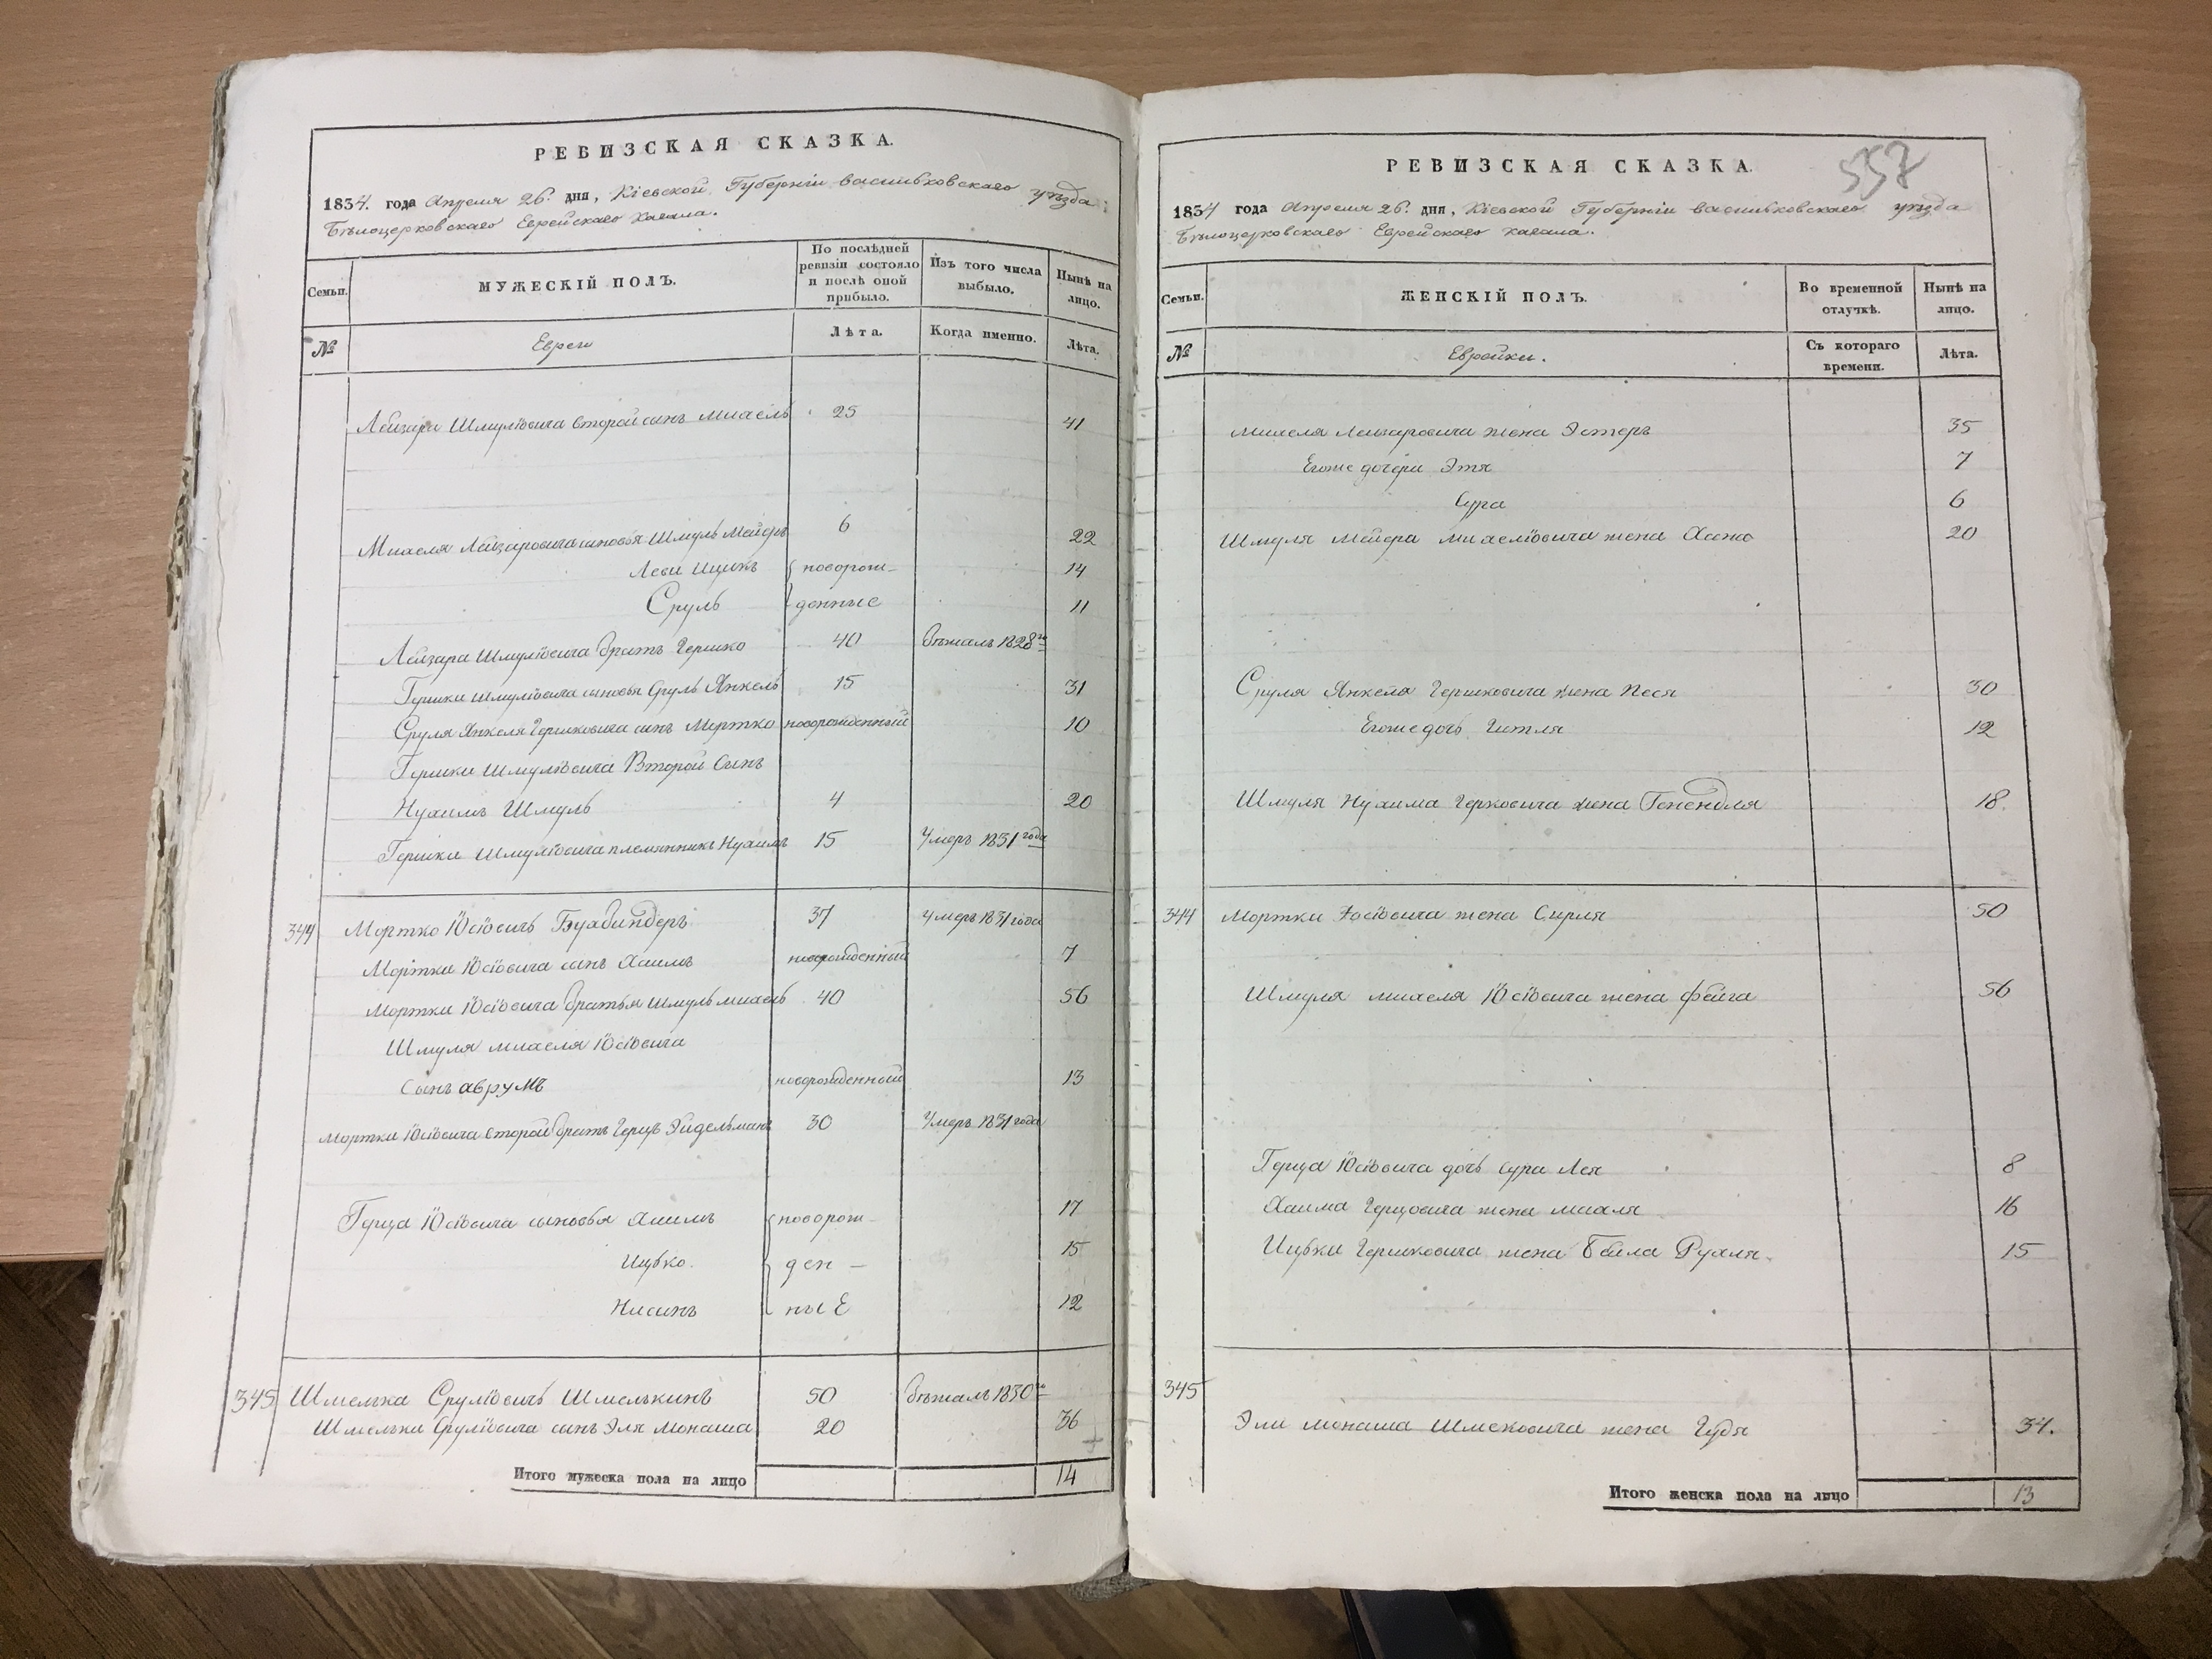 РЕВИЗСКАЯ СКАЗКА.
1834. года Апреля 26. дня, Кіевской Губерніи васильковскаго уѣзда
Бѣлоцерковскаго Еврейскаго кагала.
Семьи.
МУЖЕСКІЙ ПОЛЪ.
По послѣдней ревизіи состояло и послѣ оной прибыло.
Изъ того числа выбыло.
Нынѣ на лицо.
№
Евреи
Лѣта.
Когда именно.
Лѣта.
Лейзера Шмулiовича второй сынъ Михель 25 41
Михеля Лейзеровича сыновья Шмуль Мейеръ 6 22
Леви Ицикъ новорож- 14
Сруль денные 11
Лейзера Шмулiовича братъ Гершко 40 бѣжалъ 1828го
Гершки Шмулiовича сыновья Сруль Янкель 15 31
Сруля Янкеля Гершковича сынъ Мортко новорожденный 10
Гершки Шмулiовича Второй Сынъ
Нухимъ Шмуль 4 20
Гершки Шмулiовича племянникъ Нухимъ 15 Умеръ 1831 года
344 Мортко Юсiовичъ Бухбиндеръ 37 Умеръ 1831 года
Мортки Юсiовича сынъ Хаимъ новорожденный 7
Мортки Юсiовича братья Шмуль михель 40 56
Шмуля михеля Юсiовича
Сынъ аврумъ новорожденный 13
Мортки Юсiовича второй братъ Герцъ Эйдельманъ 30 Умеръ 1831 года
Герца Юсiовича сыновья Хаимъ новорож- 17
Ицько. ден- 15
Нисинъ ные 12
345 Шмелька Срулiовичъ Шмелькинъ 50 бѣжалъ 1830го
Шмельки Срулiовича сынъ Эля Монаша 20 36
Итого мужеска пола на лицо 14
557
РЕВИЗСКАЯ СКАЗКА.
1834 года Апреля 26. дня, Кіевской Губерніи васильковскаго уѣзда
Бѣлоцерковскаго Еврейскаго кагала.
Семьи.
ЖЕНСКІЙ ПОЛЪ.
Во временной отлучкѣ.
Нынѣ на лицо.
№
Еврейки.
Съ котораго времени.
Лѣта.
Михеля Лейзеровича жена Эстеръ 35
Егоже дочери Этя 7
Сура 6
Шмуля Мейера Михелiовича жена Хана 20
Сруля Янкеля Гершковича жена Песя 30
Егоже дочь Гитля 12
Шмуля Нухима Герковича жена Генендля 18.
344 Мортки Юсiовича жена Сирля 50
Шмуля михеля Юсiовича жена фейга 56
Герца Юсiовича дочь сура Лея 8
Хаима Герцовича жена махля 16
Ицьки Гершковича жена Бейла Рухля. 15
345
Эли монаша Шмековича жена Гудя 34.
Итого женска пола на лицо 13